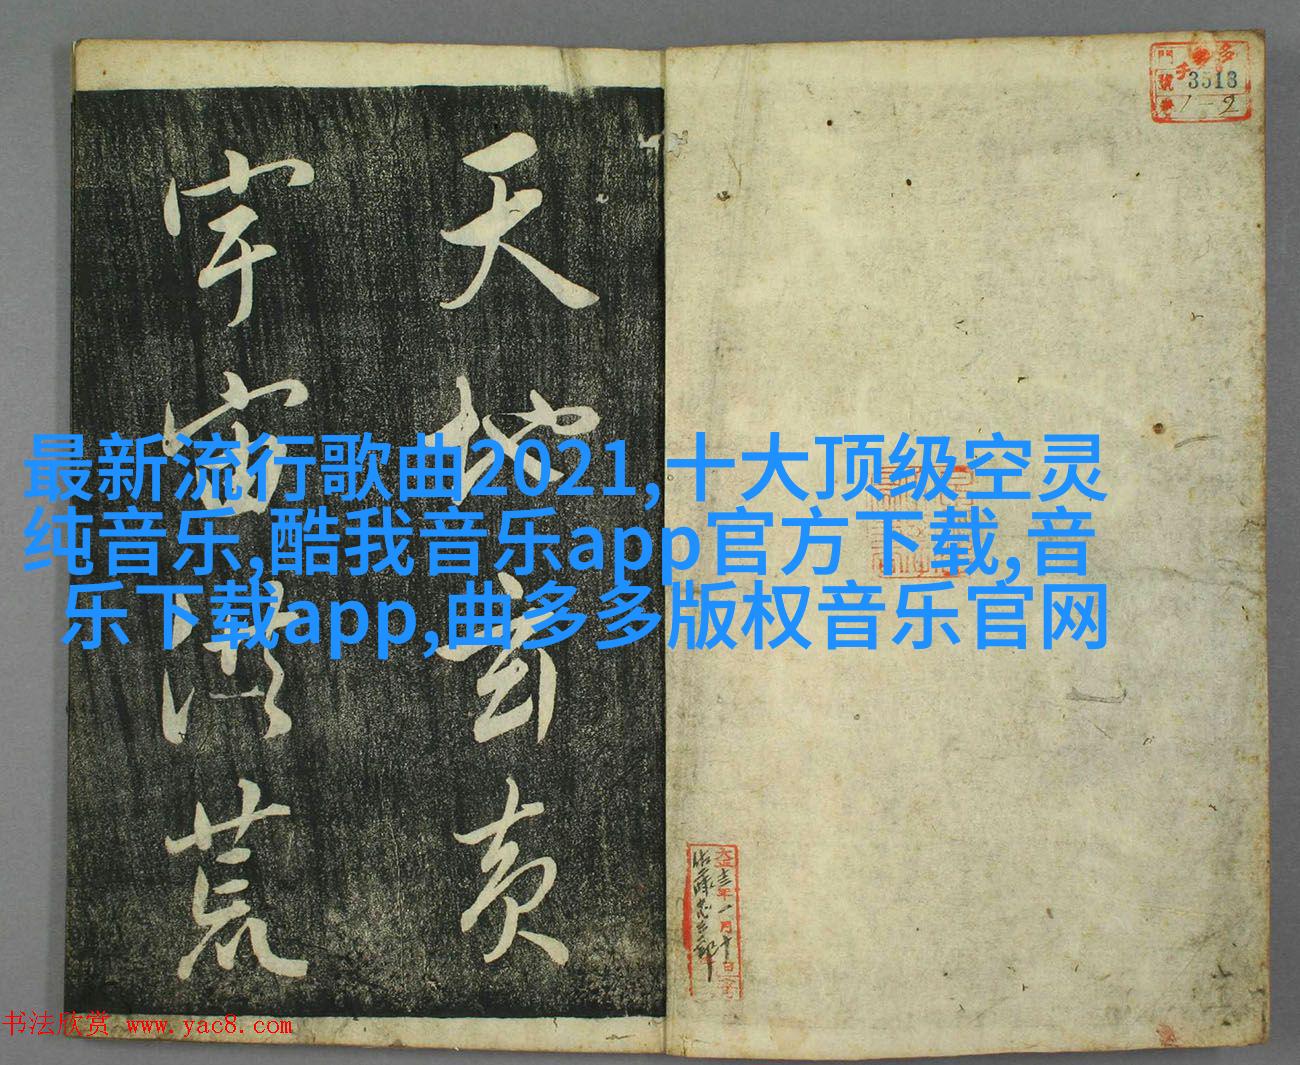 天地玄黄
宇宙洪荒
最新流行歌曲2021,十大顶级空灵
纯音乐,酷我音乐app官方下载,音
乐下载app,曲多多版权音乐官网
3513
1-2
大正十三年一月十日
书法欣赏 www.yac8.com